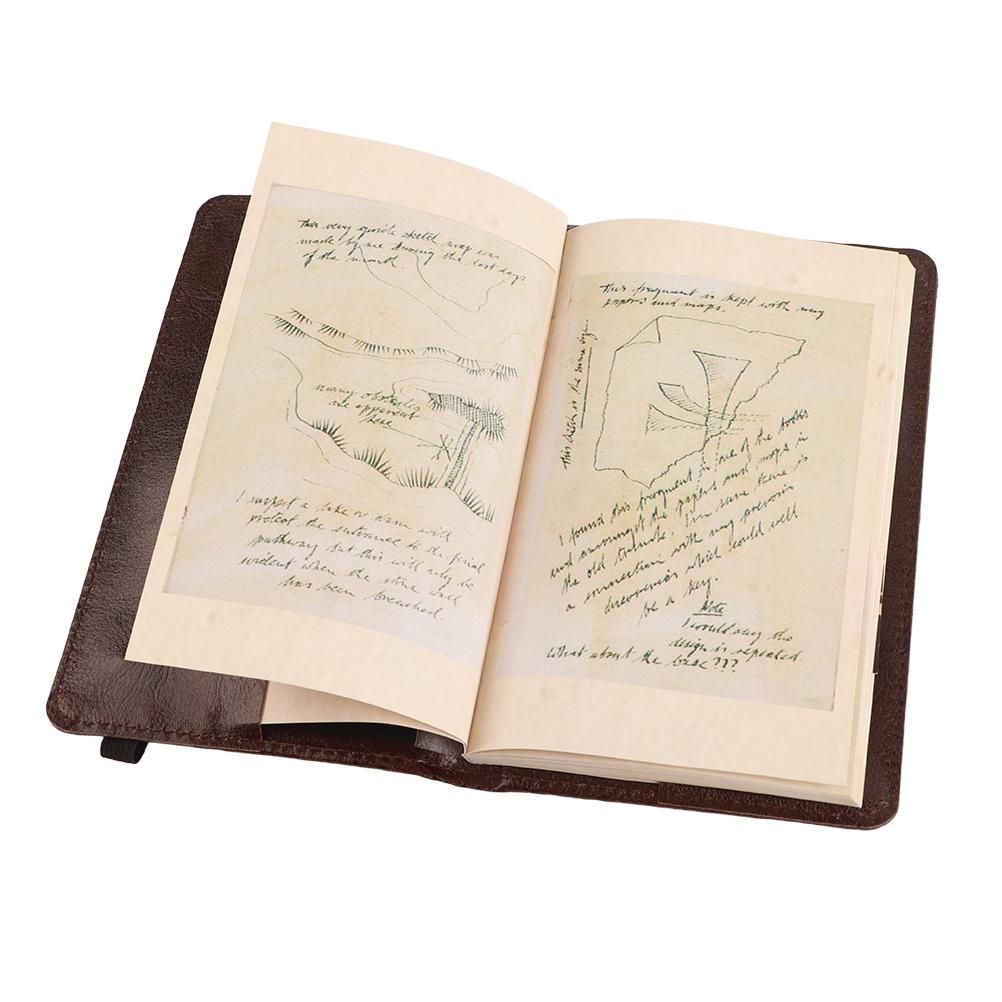 This very quick sketch map was
made by me during the last days
of the month.
many obstacles
are apparent
here
I suspect a lake or dam will
protect the entrance to the final
pathway but this will only be
evident when the stone wall
has been breached.
This fragment is kept with my
papers and maps.
This sketch is the same size.
I found this fragment in one of the books
and amongst the papers and maps in
the old trunk. I'm sure there is
a connection with my previous
discoveries which could well
be a key.
Note
I would say the
design is repeated.
What about the base???